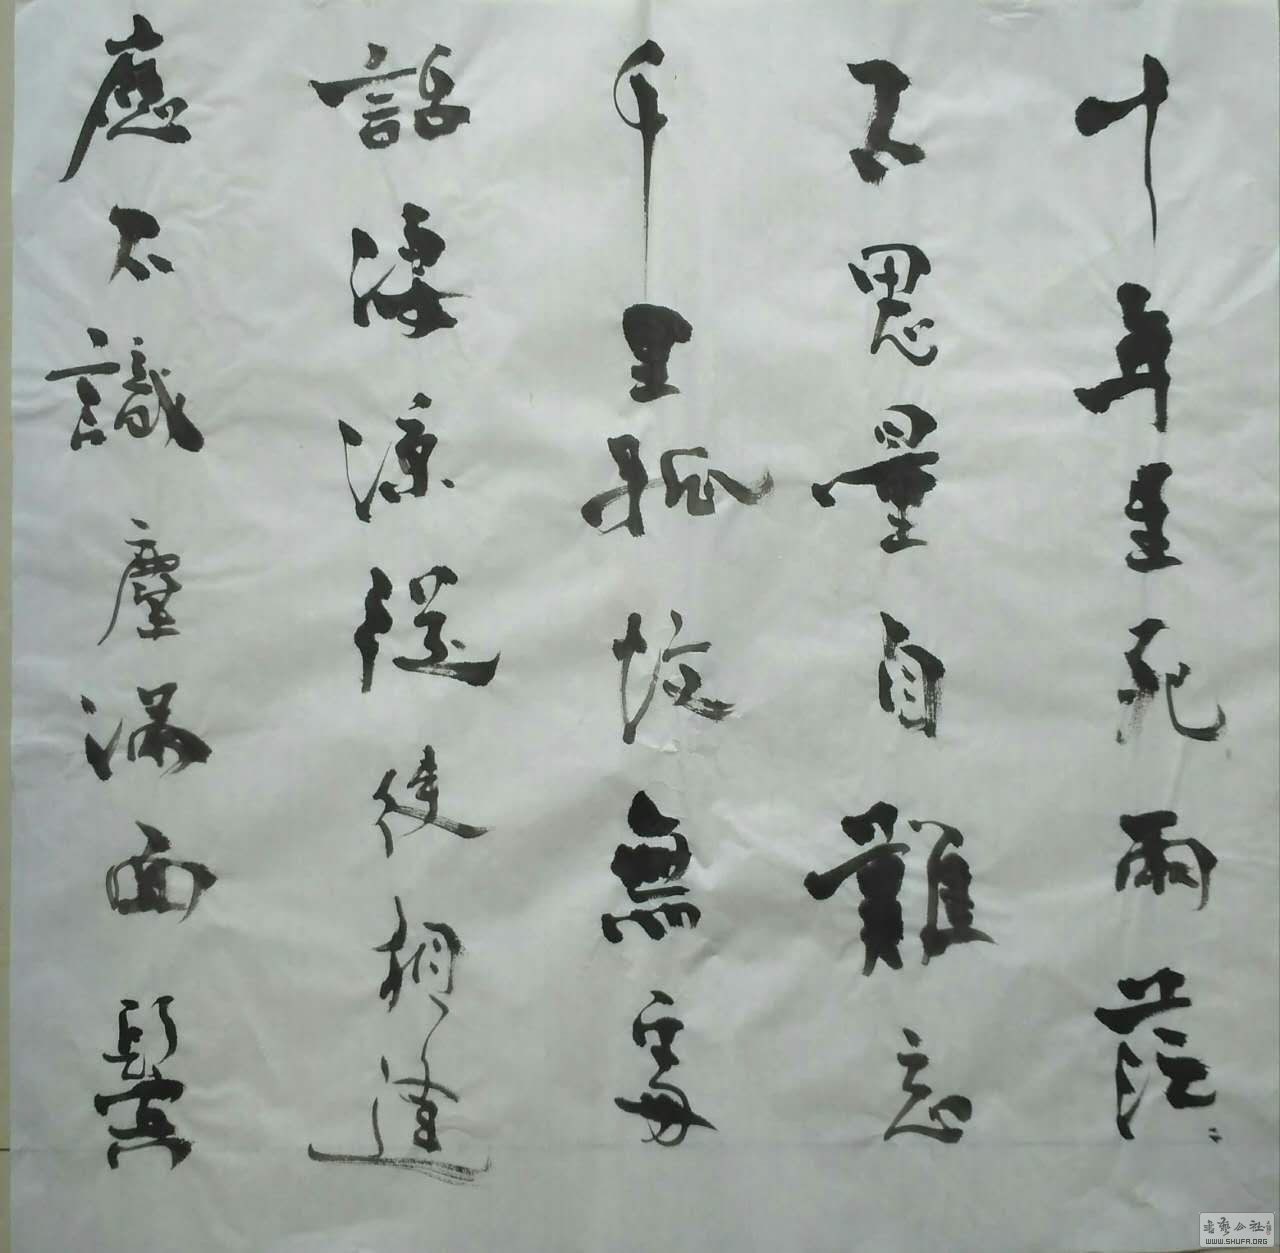 十年生死兩茫〻
不思量自難忘
千里孤坟無處
話淒涼縱使相逢
應不識塵滿面鬢
書藝公社
WWW.SHUFA.ORG